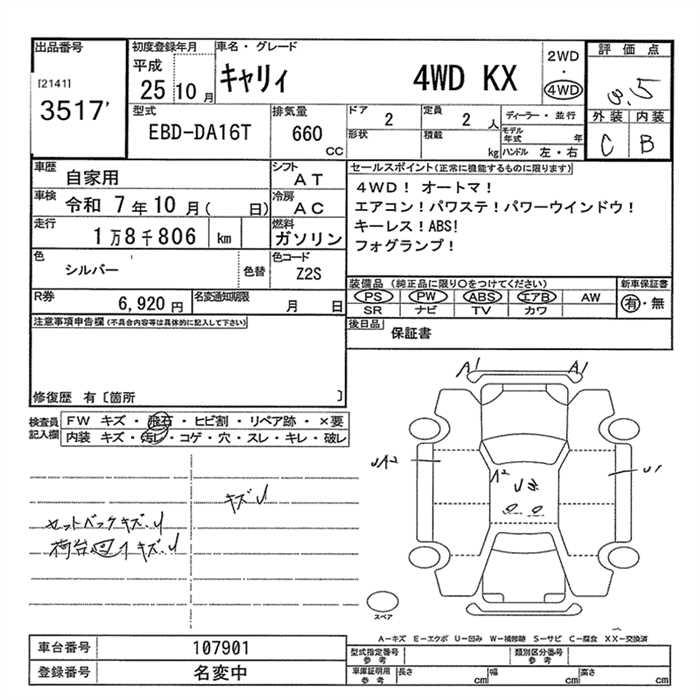 出品番号
[2141]
3517'
初度登録年月
平成
25 10 月
車名・グレード
キャリィ 4WD KX
2WD
・
4WD
評価点
3.5
外装 内装
C B
型式
EBD-DA16T
排気量
660
CC
ドア 2
形状
定員 2 人
積載 kg
ディーラー・並行
モデル年式 年
ハンドル 左・右
車歴 自家用
シフト AT
車検 令和 7年 10月( 日)
冷房 AC
走行 1万8千806 km
燃料 ガソリン
色 シルバー 色替
色コード Z2S
R券 6,920円
名変通知期限 月 日
セールスポイント(正常に機能するものに限ります)
4WD! オートマ!
エアコン!パワステ!パワーウインドウ!
キーレス!ABS!
フォグランプ!
装備品 (純正品に限り〇をつけてください)
PS PW ABS エアB AW
SR ナビ TV カワ
新車保証書
有・無
後日品 保証書
注意事項申告欄(不具合内容等は具体的に記入して下さい)
修復歴 有[箇所 ]
検査員記入欄
FW キズ・飛石・ヒビ割・リペア跡・×要
内装 キズ・汚レ・コゲ・穴・スレ・キレ・破レ
キズU
セットバックキズ.U
荷台 キズU
A1 A1
UA2 A2 U1
スペア
A-キズ E-エクボ U-凹み W-補修跡 S-サビ C-腐食 XX-交換済
車台番号 107901
登録番号 名変中
型式指定番号 参考
類別区分番号 参考
車庫証明用 参考
長さ cm 幅 cm 高さ cm